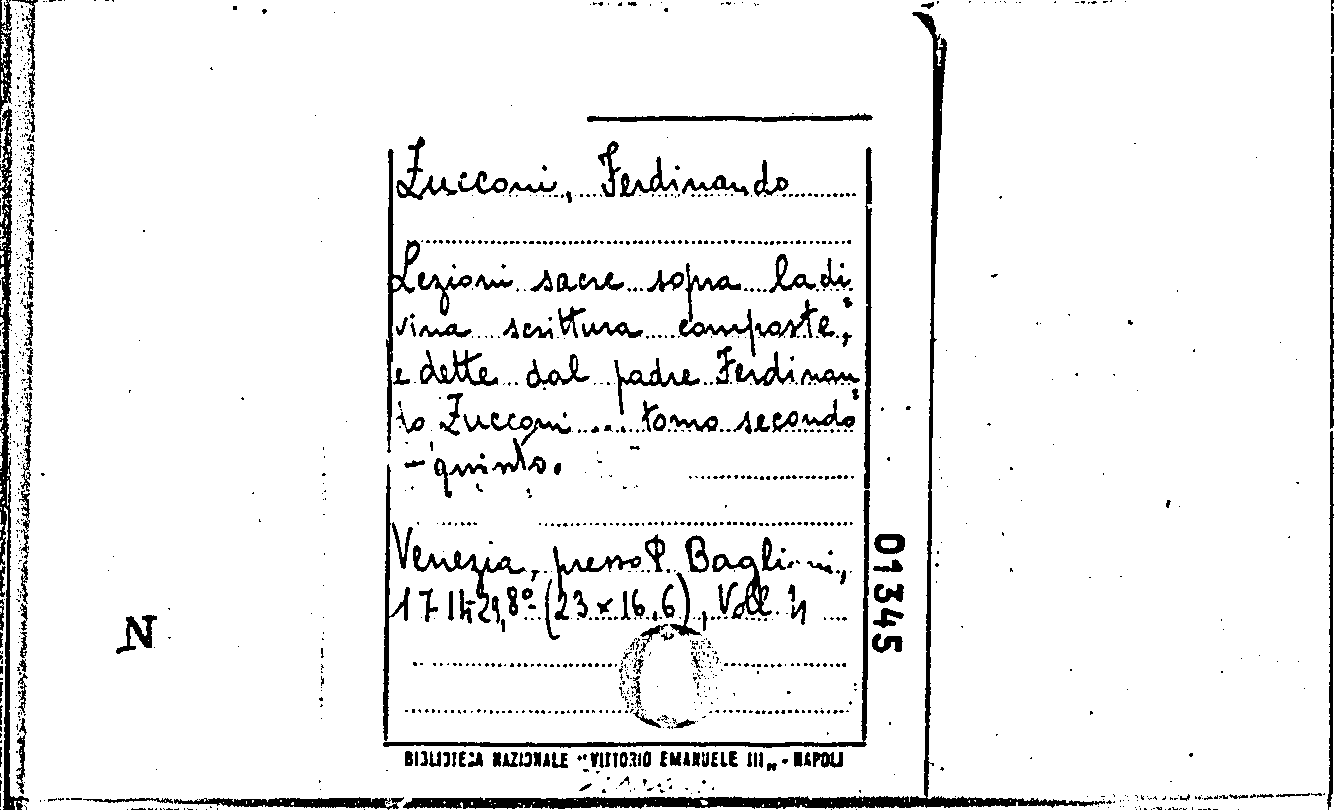 Zucconi, Ferdinando
Lezioni sacre sopra la di
vina scrittura composte,
e dette dal padre Ferdinan
do Zucconi ... tomo secondo
- quinto.
Venezia, presso P. Baglioni,
8º (23 x 16,6), Voll. 4
01345
N
BIBLIOTECA NAZIONALE "VITTORIO EMANUELE III" - NAPOLI